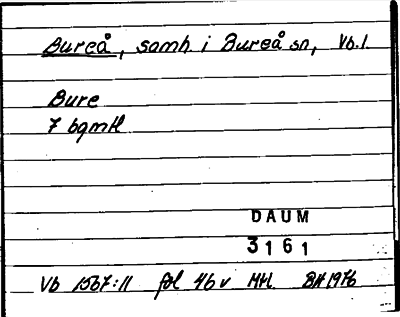 Bureå, samh. i Bureå sn, Vb.l.
Bure
7 bgmtl
DAUM
3161
Vb 1567:11 fol 46v Mtl. BH 1976